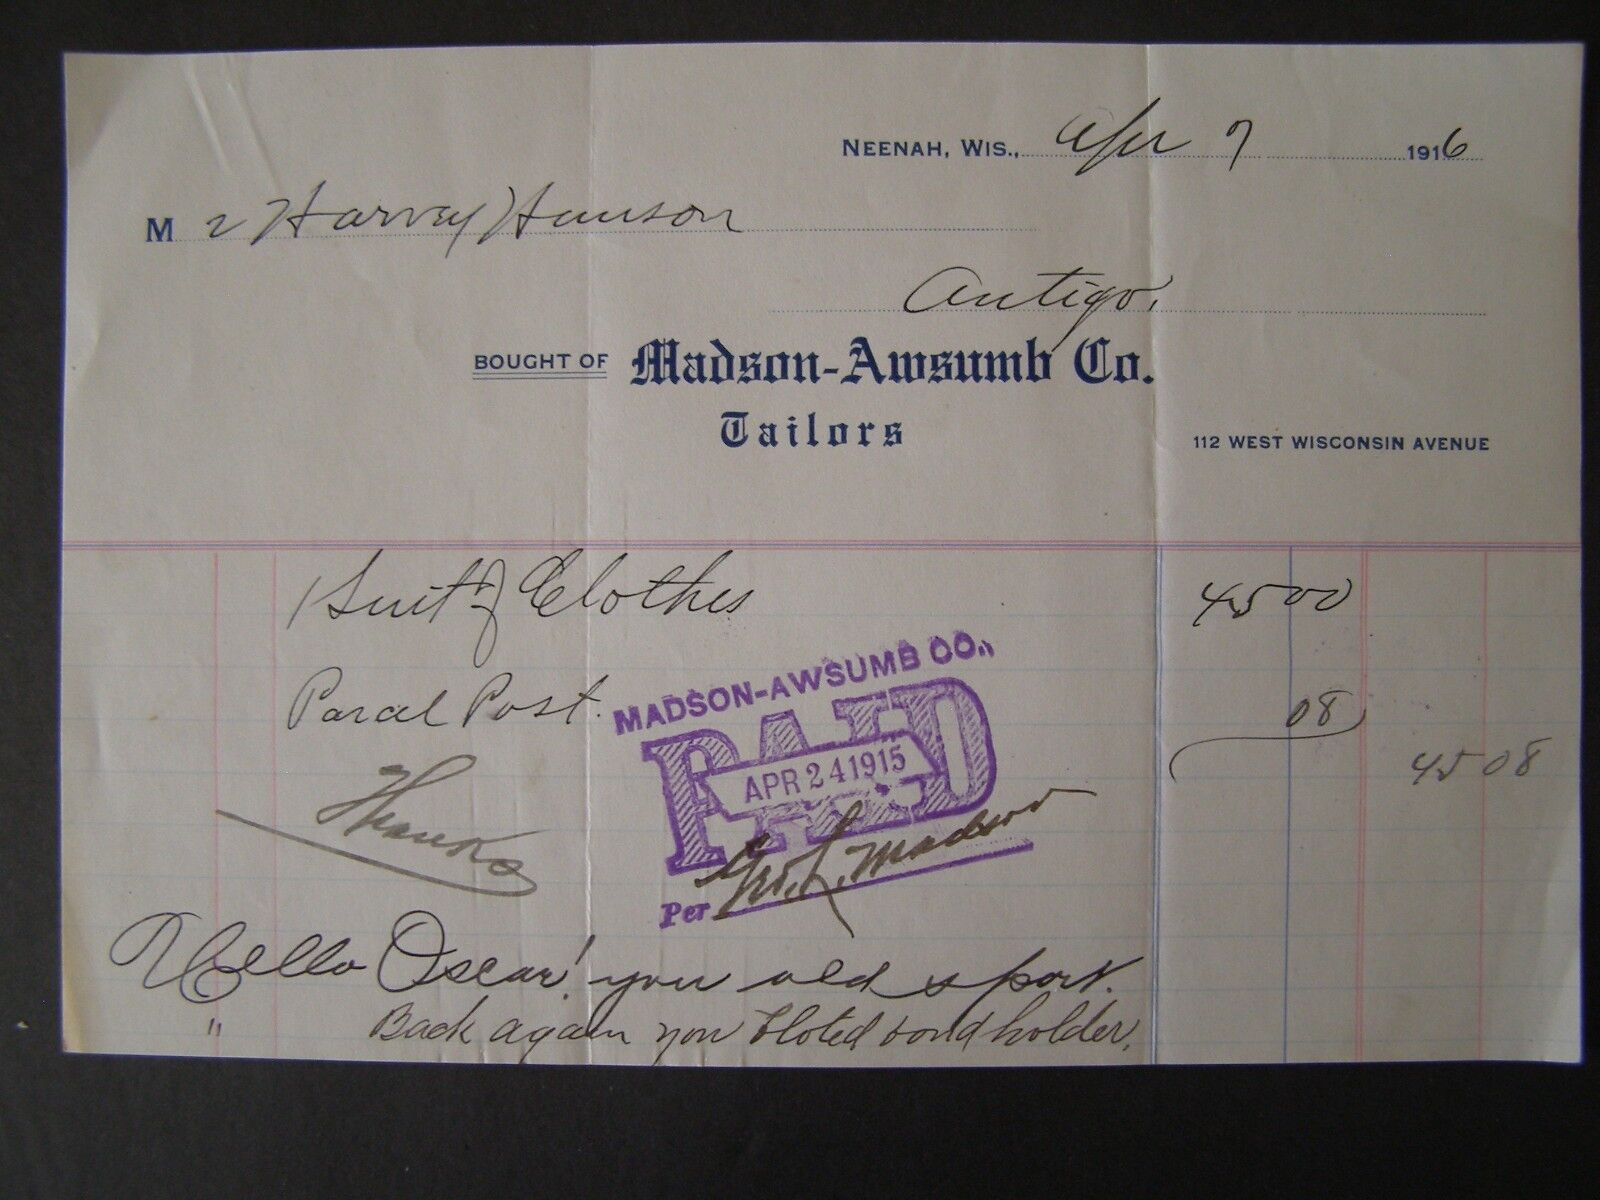 NEENAH, WIS., Apr 7 1916
Mr Harvey Hanson
Antigo.
BOUGHT OF Madson-Awsumb Co.
Tailors
112 WEST WISCONSIN AVENUE
1 Suit of Clothes 45 00
Parcel Post. 08
45 08
MADSON-AWSUMB CO.,
PAID
APR 24 1915
Thanks
Per Geo. L. Madson
Hello Oscar! you old sport.
" Back again you bloted bond holder.